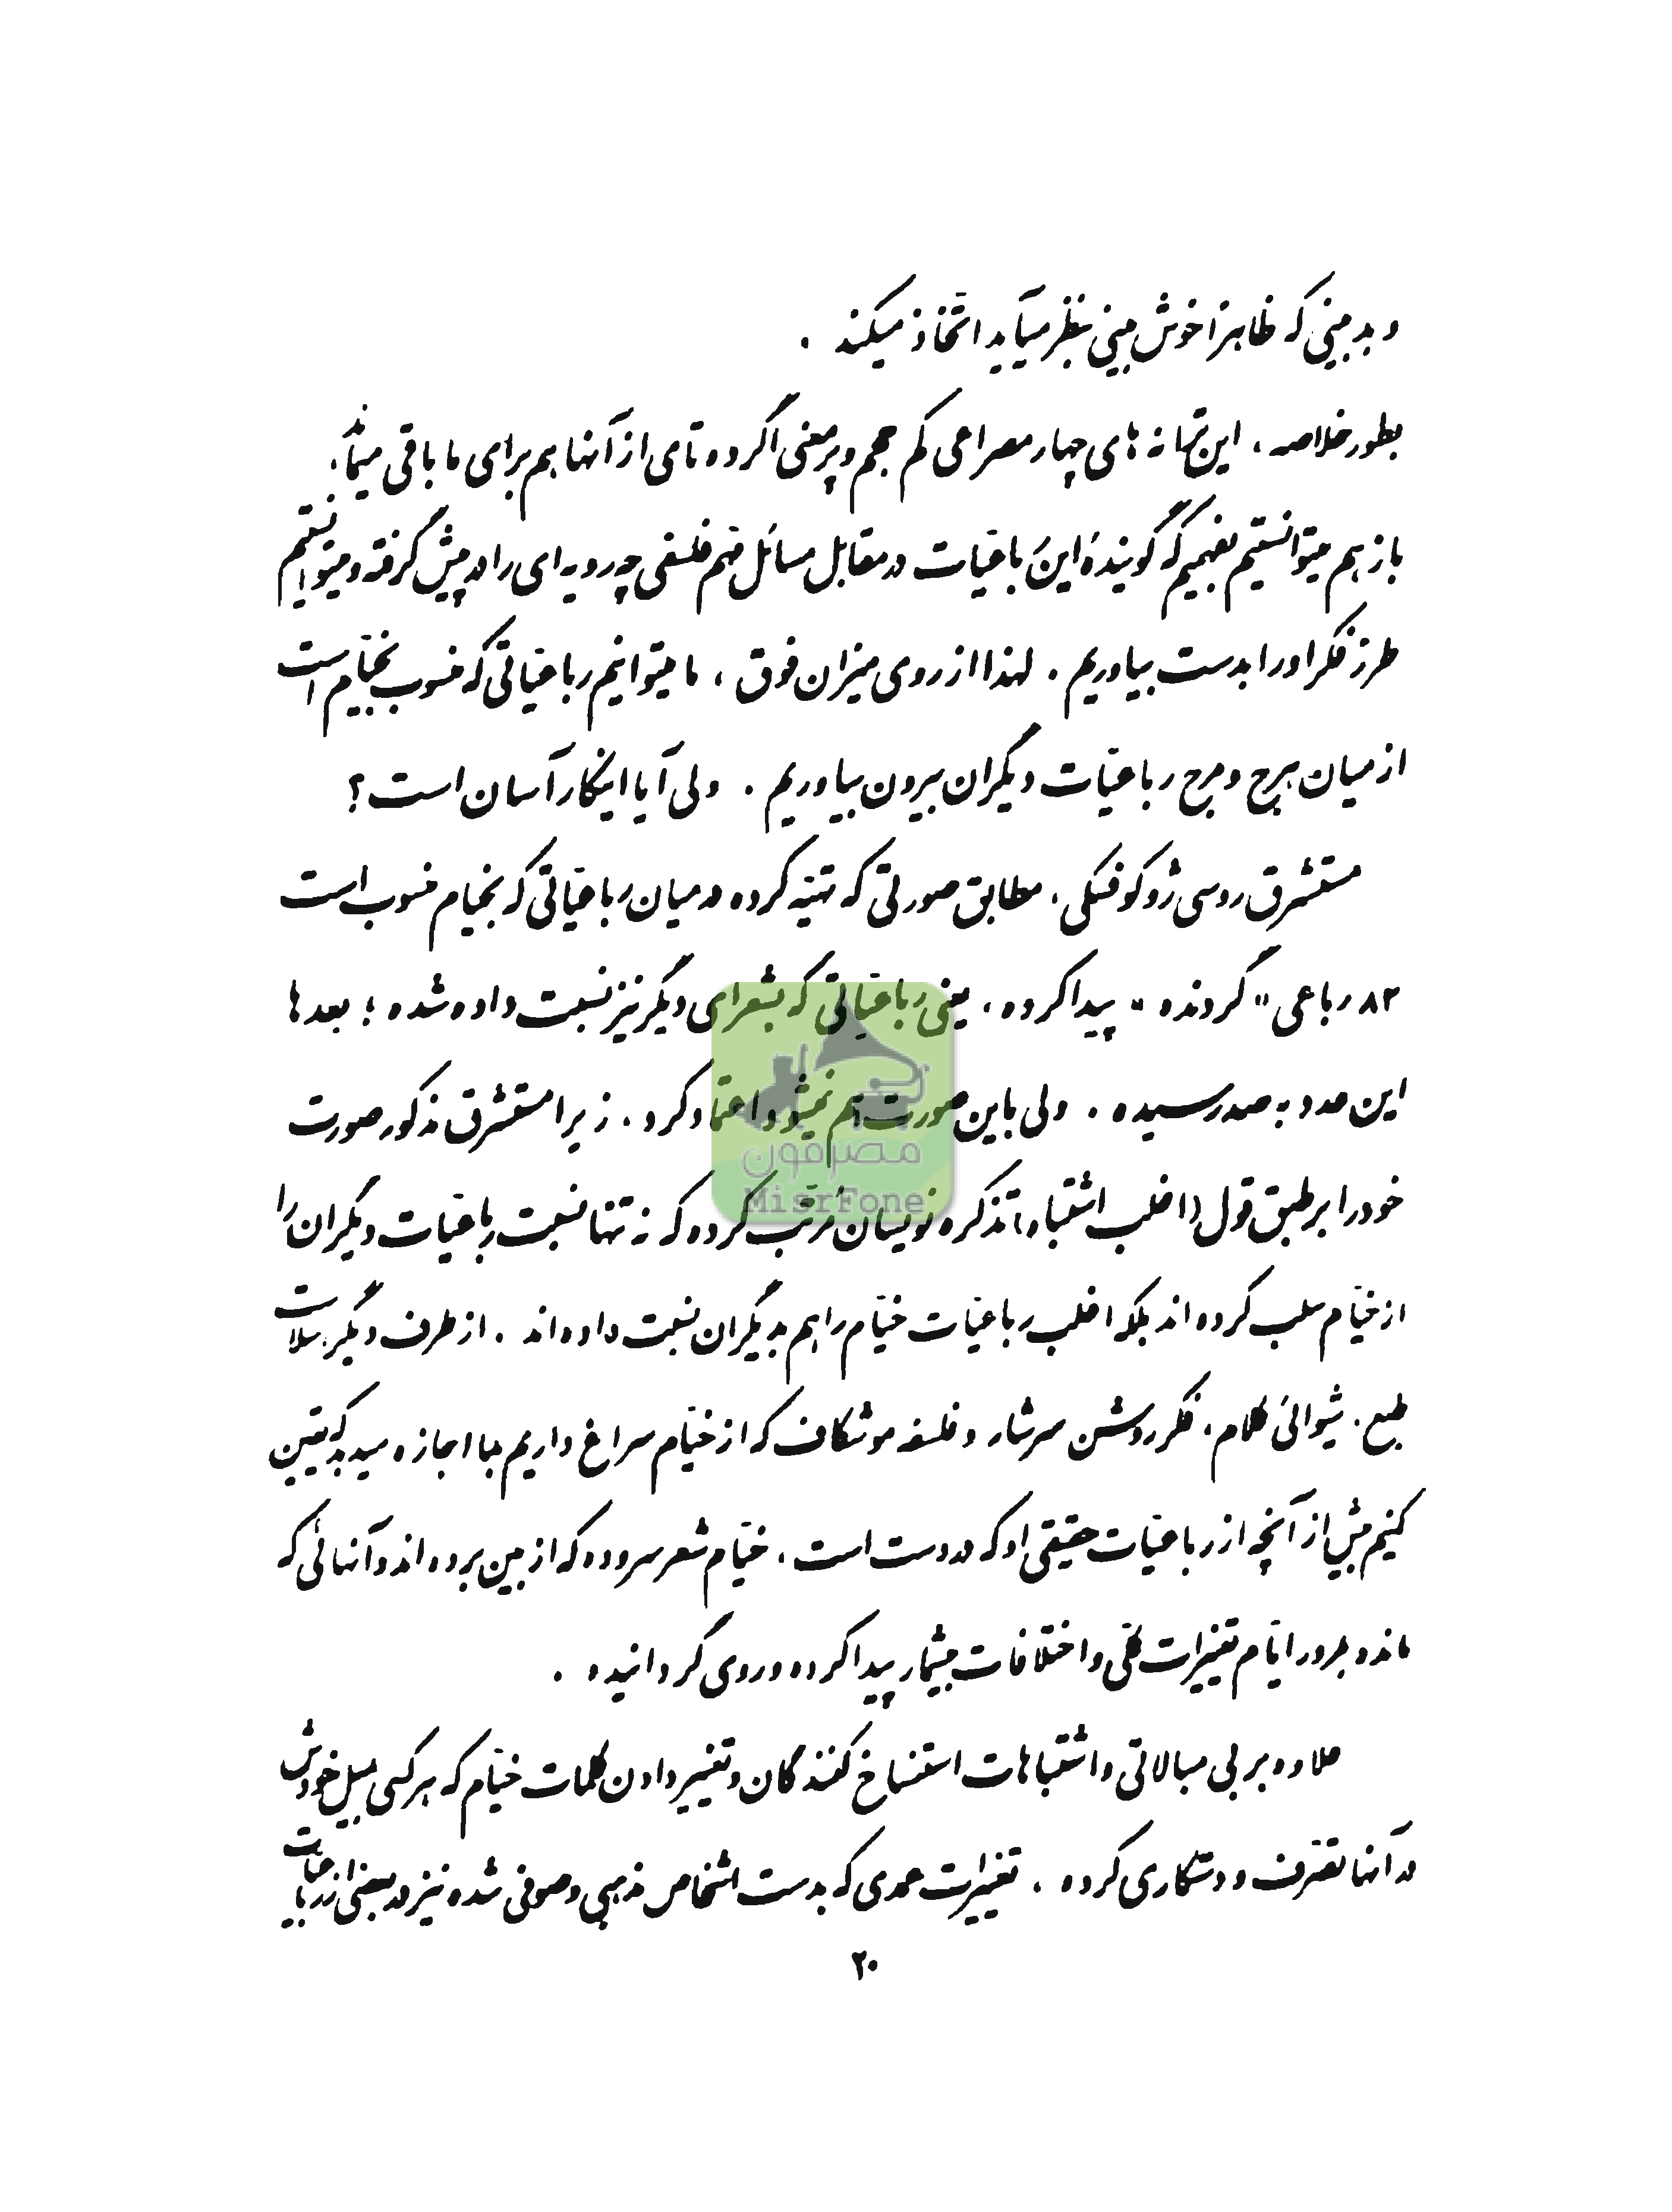 و بدبینی که ظاهراً خوش بینی بنظر میآید اتّخاذ میکند .
بطور خلاصه ، این ترانه های چهار مصراعی کم حجم و پرمعنی اگر ده تای از آنها هم برای ما باقی میماند،
باز هم میتوانستیم بفهمیم که گویندهٔ این رباعیات در مقابل مسائل مهم فلسفی چه رویه ای را در پیش گرفته و میتوانستیم
طرز فکر او را بدست بیاوریم . لهذا از روی میزان فوق ، ما میتوانیم رباعیاتی که منسوب بخیّام است
از میان هرج و مرج رباعیّات دیگران بیرون بیاوریم . ولی آیا اینکار آسان است ؟
مستشرق روسی ژوکوفسکی ، مطابق صورتی که تهیّه کرده در میان رباعیّاتی که بخیام منسوب است
۸۲ رباعی " گردنده " پیدا کرده ، یعنی رباعیاتی که بشعرای دیگر نیز نسبت داده شده ؛ بعدها
این عدد به صد رسیده . ولی باین صورت هم نمیشود اعتماد کرد ، زیرا مستشرق مذکور صورت
خود را بر طبق قول (اغلب اشتباه) تذکره نویسان مرتّب کرده که نه تنها نسبت رباعیّات دیگران را
از خیّام سلب کرده اند بلکه اغلب رباعیّات خیّام را هم بدیگران نسبت داده اند . از طرف دیگر ، سلاست
طبع ، شیوائی کلام ، فکر روشن سرشار و فلسفه موشکاف که از خیّام سراغ داریم بما اجازه میدهد که یقین
کنیم بیش از آنچه از رباعیّات حقیقی او که در دست است ، خیّام شعر سروده که از بین برده اند و آنهائی که
مانده بمرور ایّام تغییرات کلّی و اختلافات بیشمار پیدا کرده و روی گردانیده .
علاوه بر بی مبالاتی و اشتباهات استنساخ کنندگان و تغییر دادن کلمات خیّام که هر کسی بمیل خودش
در آنها تصرّف و دستکاری کرده ، تغییرات عمدی که بدست اشخاص مذهبی و صوفی شده نیز در بعضی از رباعیّات
۲۰
مصرفون
MisrFone